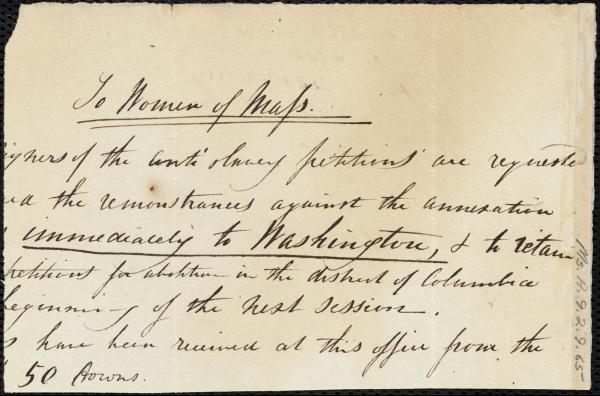 To Women of Mass.
igners of the anti slavery petitions are requeste
d the remonstrances against the annexation
immediately to Washington, & to retain
petitions for abolition in the district of Columbia
beginning of the next session.
s have been received at this office from the
50 towns.
Ms. A. 9. 2. 9. 65